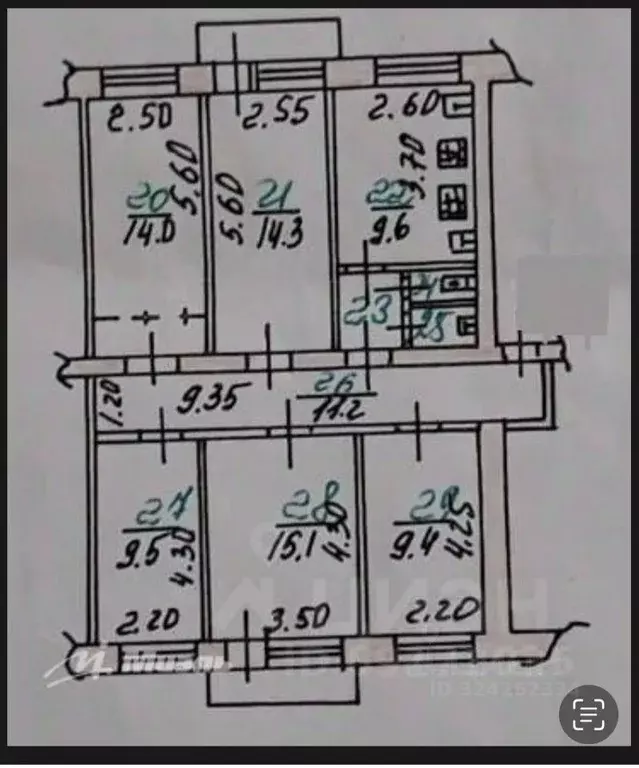 2.50
2.55
2.60
5.60
5.60
3.70
20
14.0
21
14.3
22
9.6
23
24
25
1.20
9.35
26
11.2
27
9.5
4.30
28
15.1
4.30
29
9.4
4.25
2.20
3.50
2.20